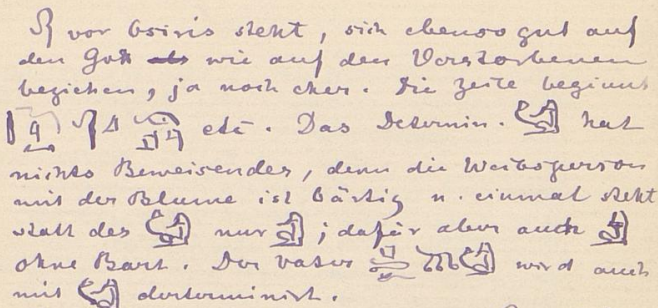 vor Osiris steht, sich ebenso gut auf
den Gott wie auf den Verstorbenen
beziehen, ja noch eher. Die Zeile beginnt
etc. Das Determin. hat
nichts Beweisendes, denn die Weibsperson
mit der Blume ist bärtig u. einmal steht
statt des nur ; dafür aber auch
ohne Bart. Der Vater wird auch
mit determinirt.